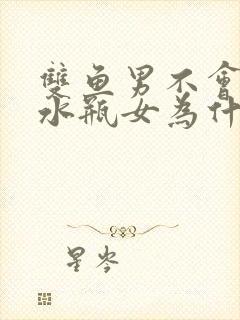 雙魚男不會
水瓶女為什
星岑